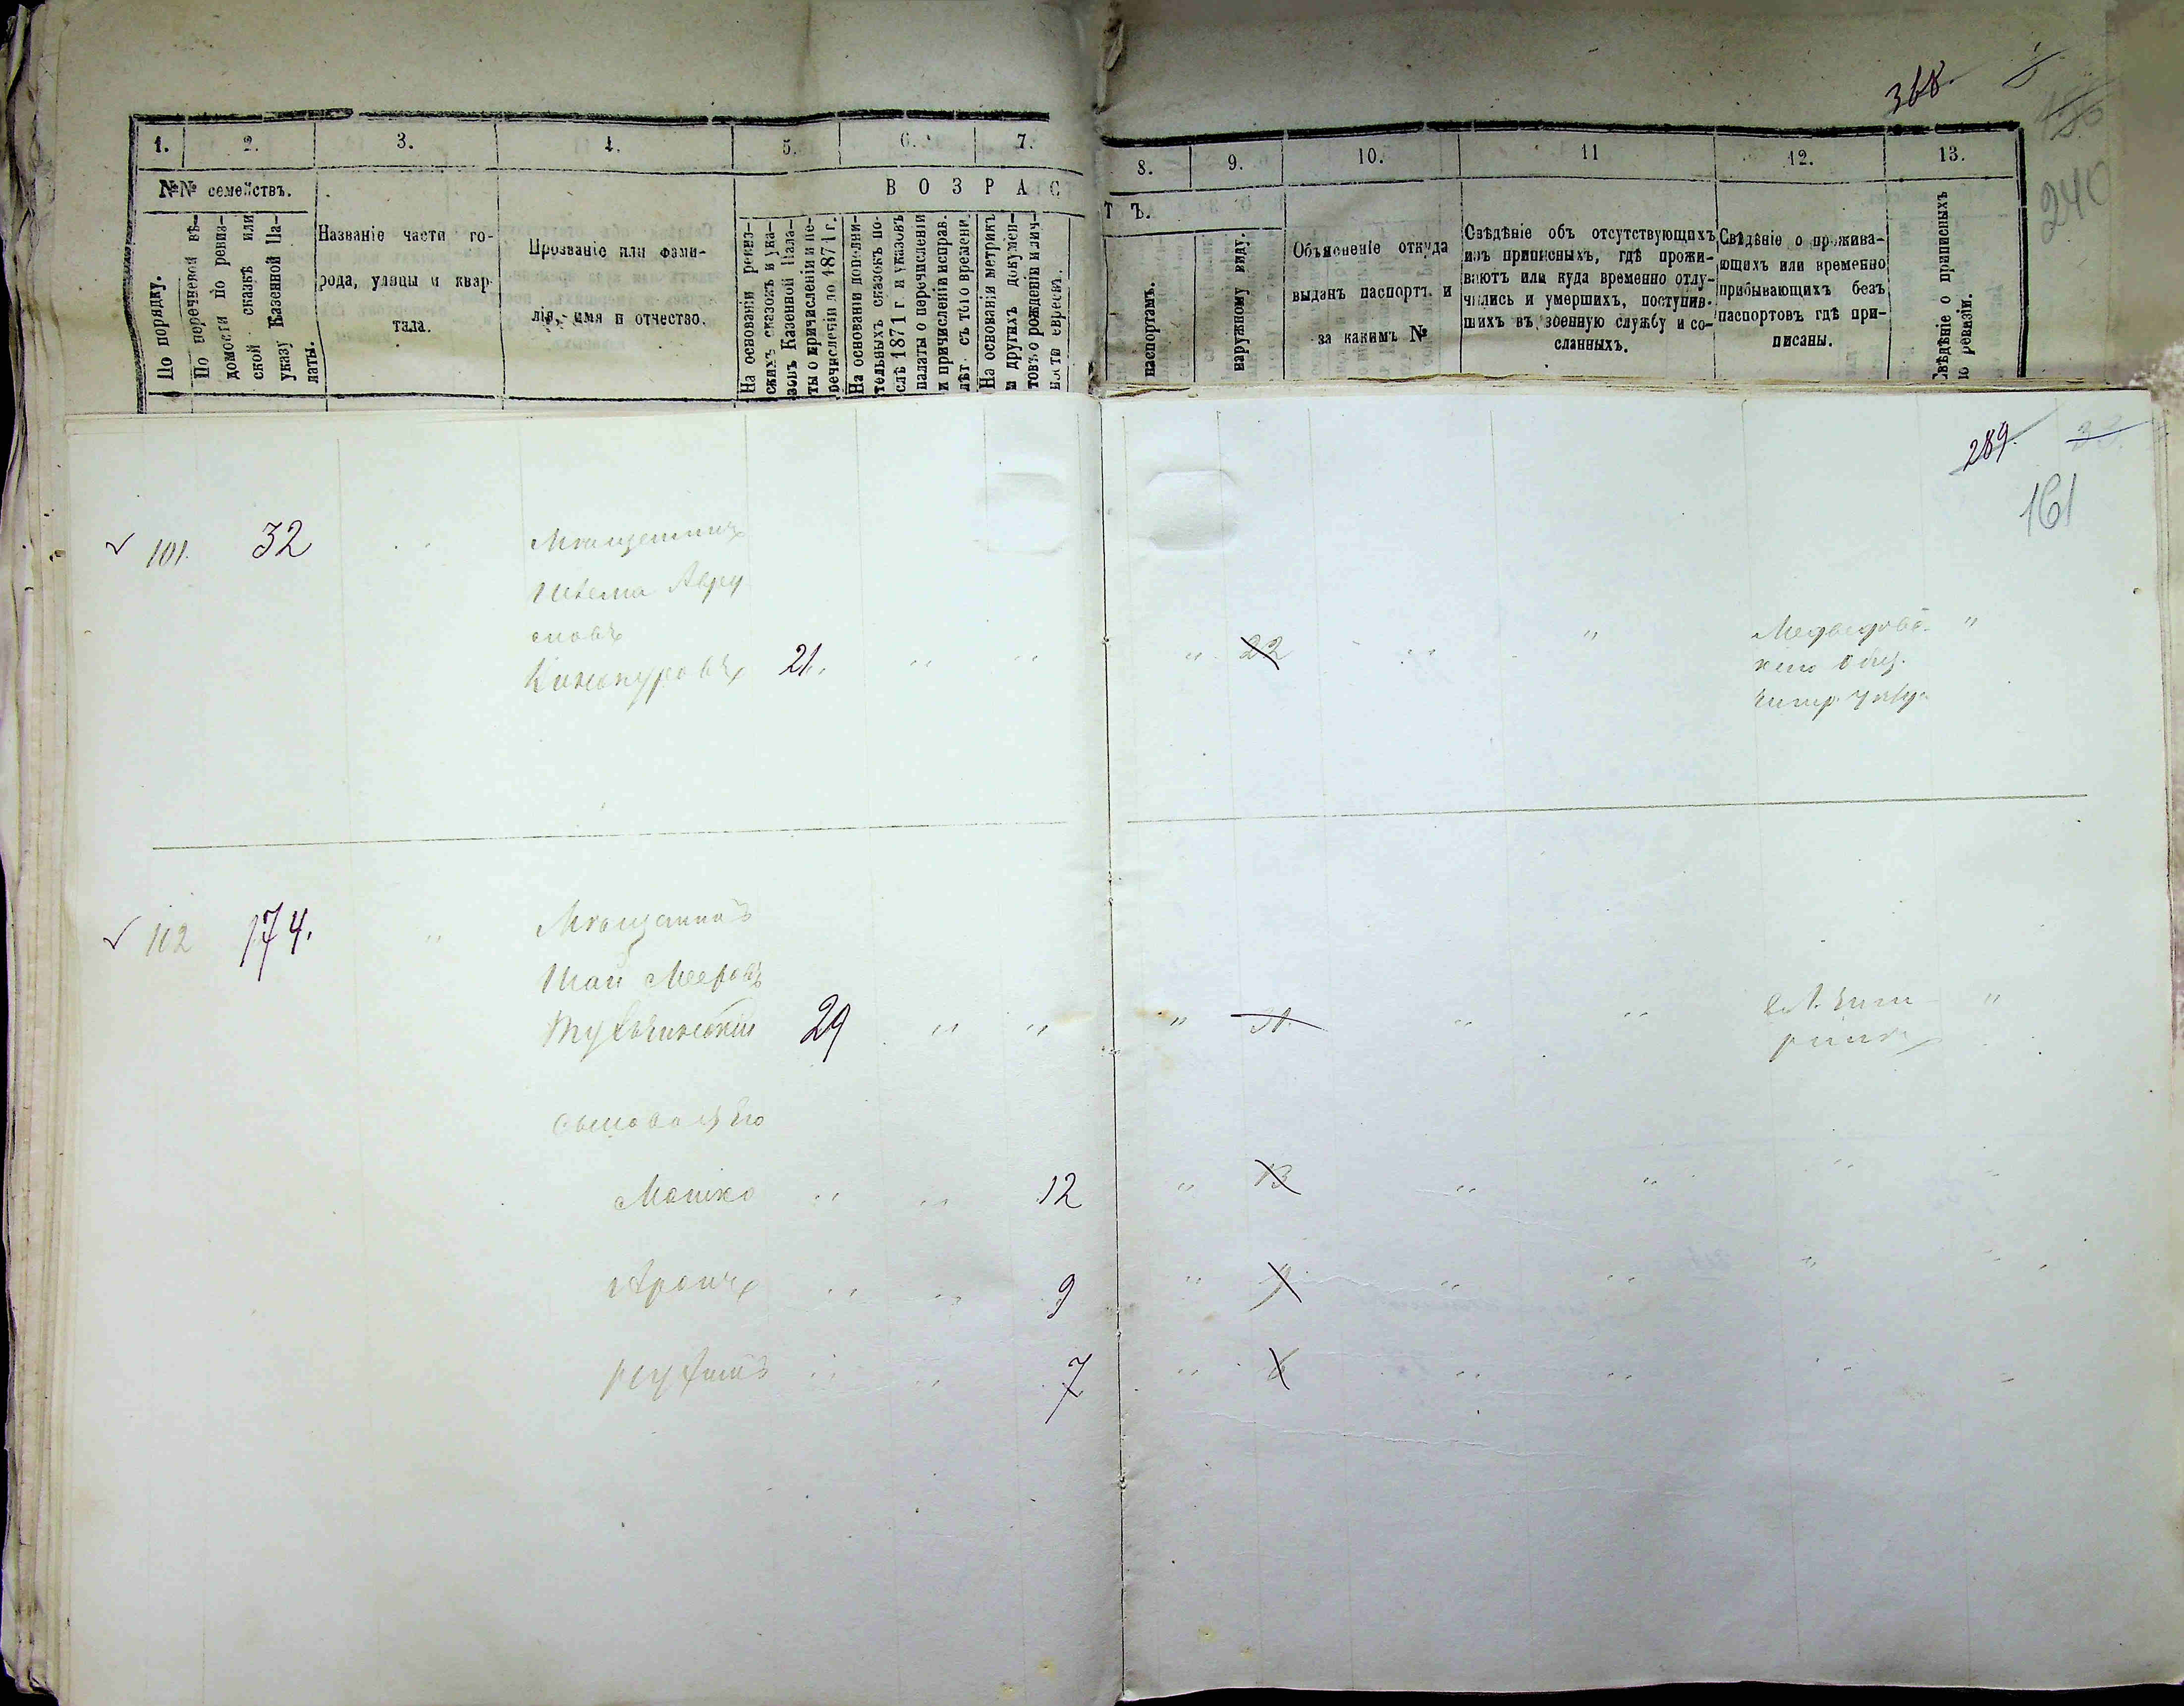 368.
240
1. 2. 3. 4. 5. 6. 7. 8. 9. 10. 11 12. 13.
№№ семействъ.
По порядку.
По перечневой вѣ-
домости по ревиз-
ской сказкѣ или
указу Казенной Па-
латы.
Названіе части го-
рода, улицы и квар-
тала.
Прозваніе или фами-
лія, имя и отчество.
В О З Р А С Т Ъ.
На основаніи ревиз-
скихъ сказокъ и ука-
зовъ Казенной Пала-
ты о причисленіи и пе-
речисленіи до 1871 г.
На основаніи дополни-
тельныхъ сказокъ по-
слѣ 1871 г. и указовъ
палаты о перечисленіи
и причисленіи исправ.
лѣт. съ того времени.
На основаніи метрикъ
и другихъ докумен-
товъ о рожденіи и лич-
ности евреевъ.
паспортамъ.
наружному виду.
Объясненіе откуда
выданъ паспортъ и
за какимъ №
Свѣдѣніе объ отсутствующихъ
изъ приписныхъ, гдѣ прожи-
ваютъ или куда временно отлу-
чились и умершихъ, поступив-
шихъ въ военную службу и со-
сланныхъ.
Свѣдѣніе о прожива-
ющихъ или временно
прибывающихъ безъ
паспортовъ гдѣ при-
писаны.
Свѣдѣніе о приписныхъ
по ревизіи.
289.
161
101. 32 Мѣщанинъ
Авру
мовъ
21. " " " 22 " " "
Медведовс
каго Общ.
Чигир. Уѣзда
102 174. " Мѣщанинъ
Шая Мееровъ
Тульчинскій 29 " " " 31. " " "
Чиги
ринъ
Сыновья Его
Мошко " " 12 " 13 " " " "
Аронъ " " 9 " 9 " " " "
" " 7 " 6 " " " "